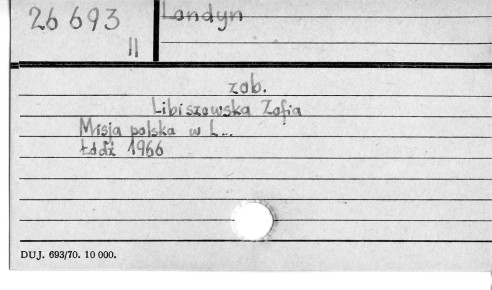 26 693
II
Londyn
zob.
Libiszowska Zofia
Misja polska w L...
Łódź 1966
DUJ. 693/70. 10 000.